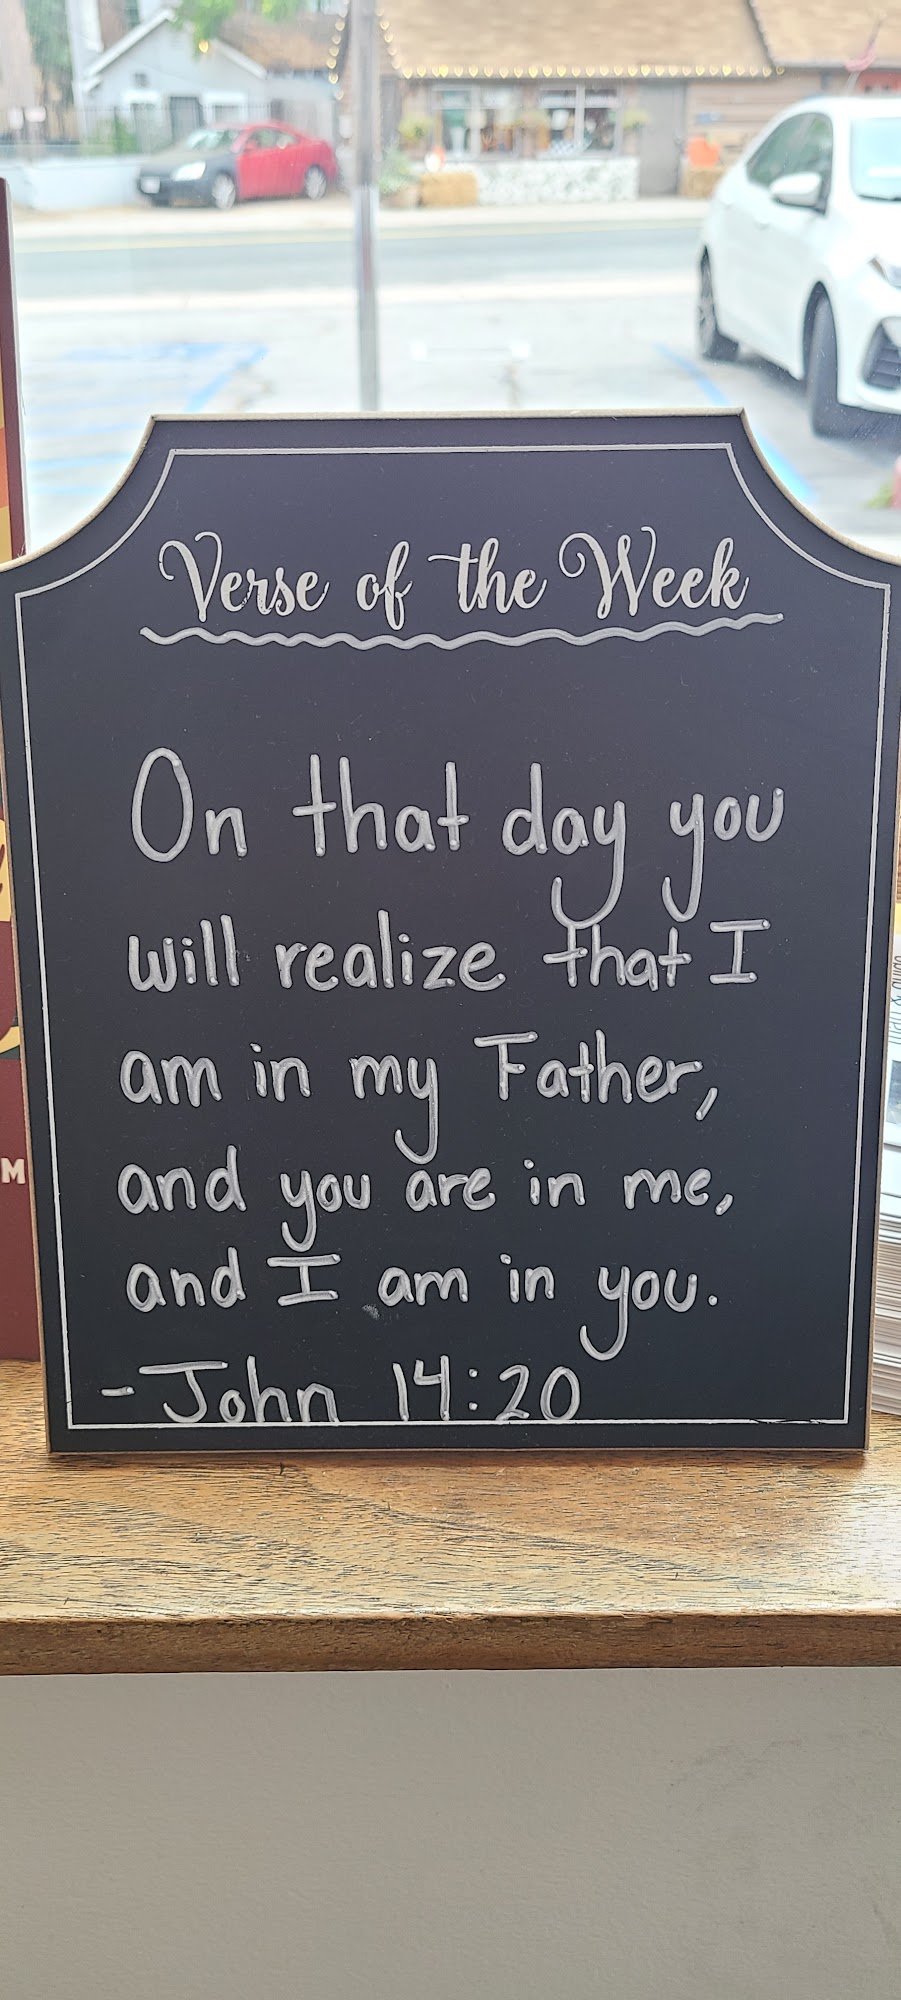 Verse of the Week
On that day you
will realize that I
am in my Father,
and you are in me,
and I am in you.
-John 14:20
M